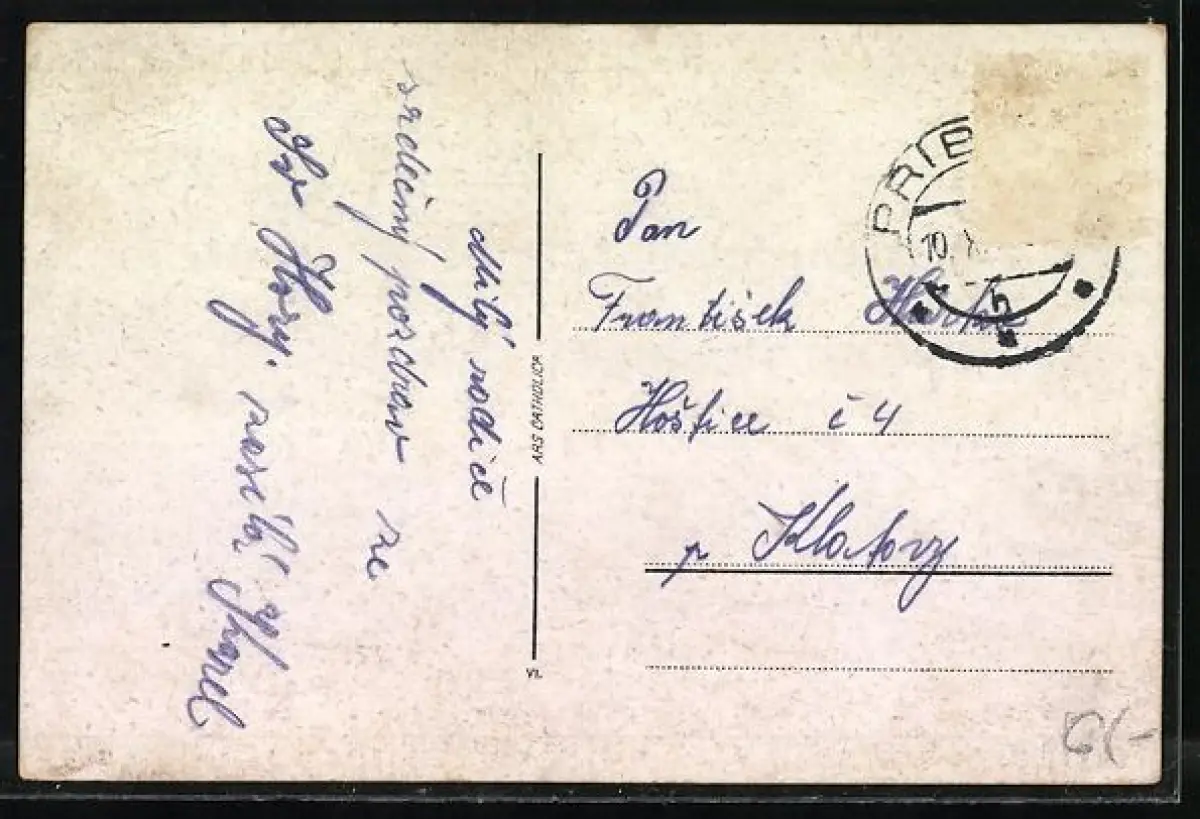 Milý rodiče
srdečný pozdrav ze
Sv Hory. zasílá Karel
ARS CATHOLICA
VII.
Pan
František
Hoštice č 4
p Klatovy
PŘIB
10. X